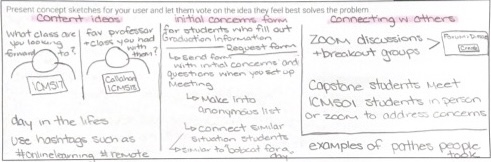 Present concept sketches for your user and let them vote on the idea they feel best solves the problem
Content ideas
What class are you looking forward to?
ICMS17
fav professor + class you had with them?
Callahan
ICMS01
day in the lifes
use hashtags such as
#onlinelearning #remote
initial concerns form
for students who fill out
Graduation Information
Request form
↳ Send form
with initial concerns and
questions when you set up
Meeting
↳ Make into
anonymous list
↳ connect similar
situation students
↳ similar to "bobcat for a
day
Connecting w others
ZOOM discussions
+ breakout groups
Capstone students Meet
ICMS01 students in person
or zoom to address concerns
examples of pathes people
took